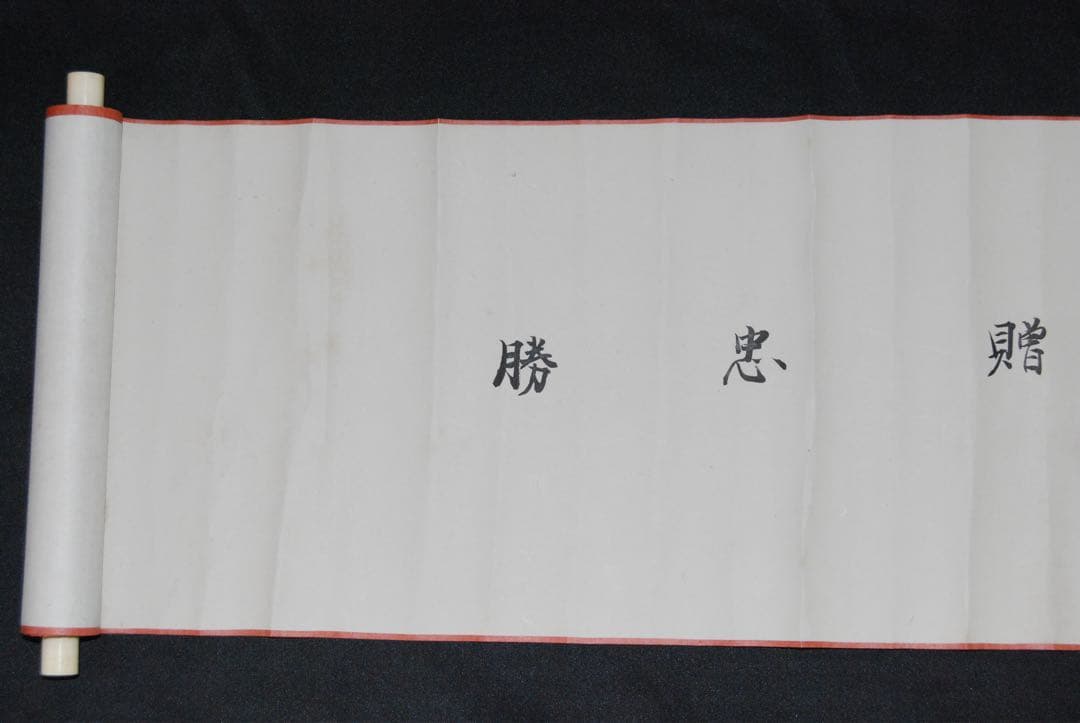 贈忠勝